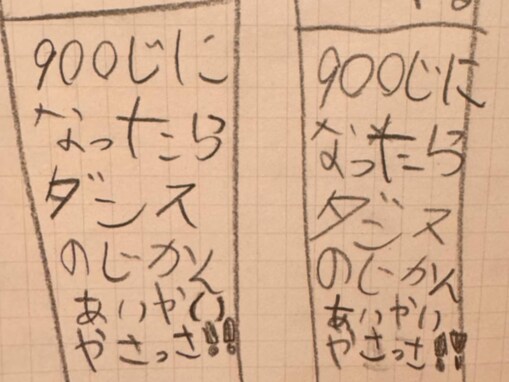 900じに
なったら
ダンス
のじかん
あいやい
やさっさ!!
900じに
なったら
ダンス
のじかん
あいやい
やさっさ!!